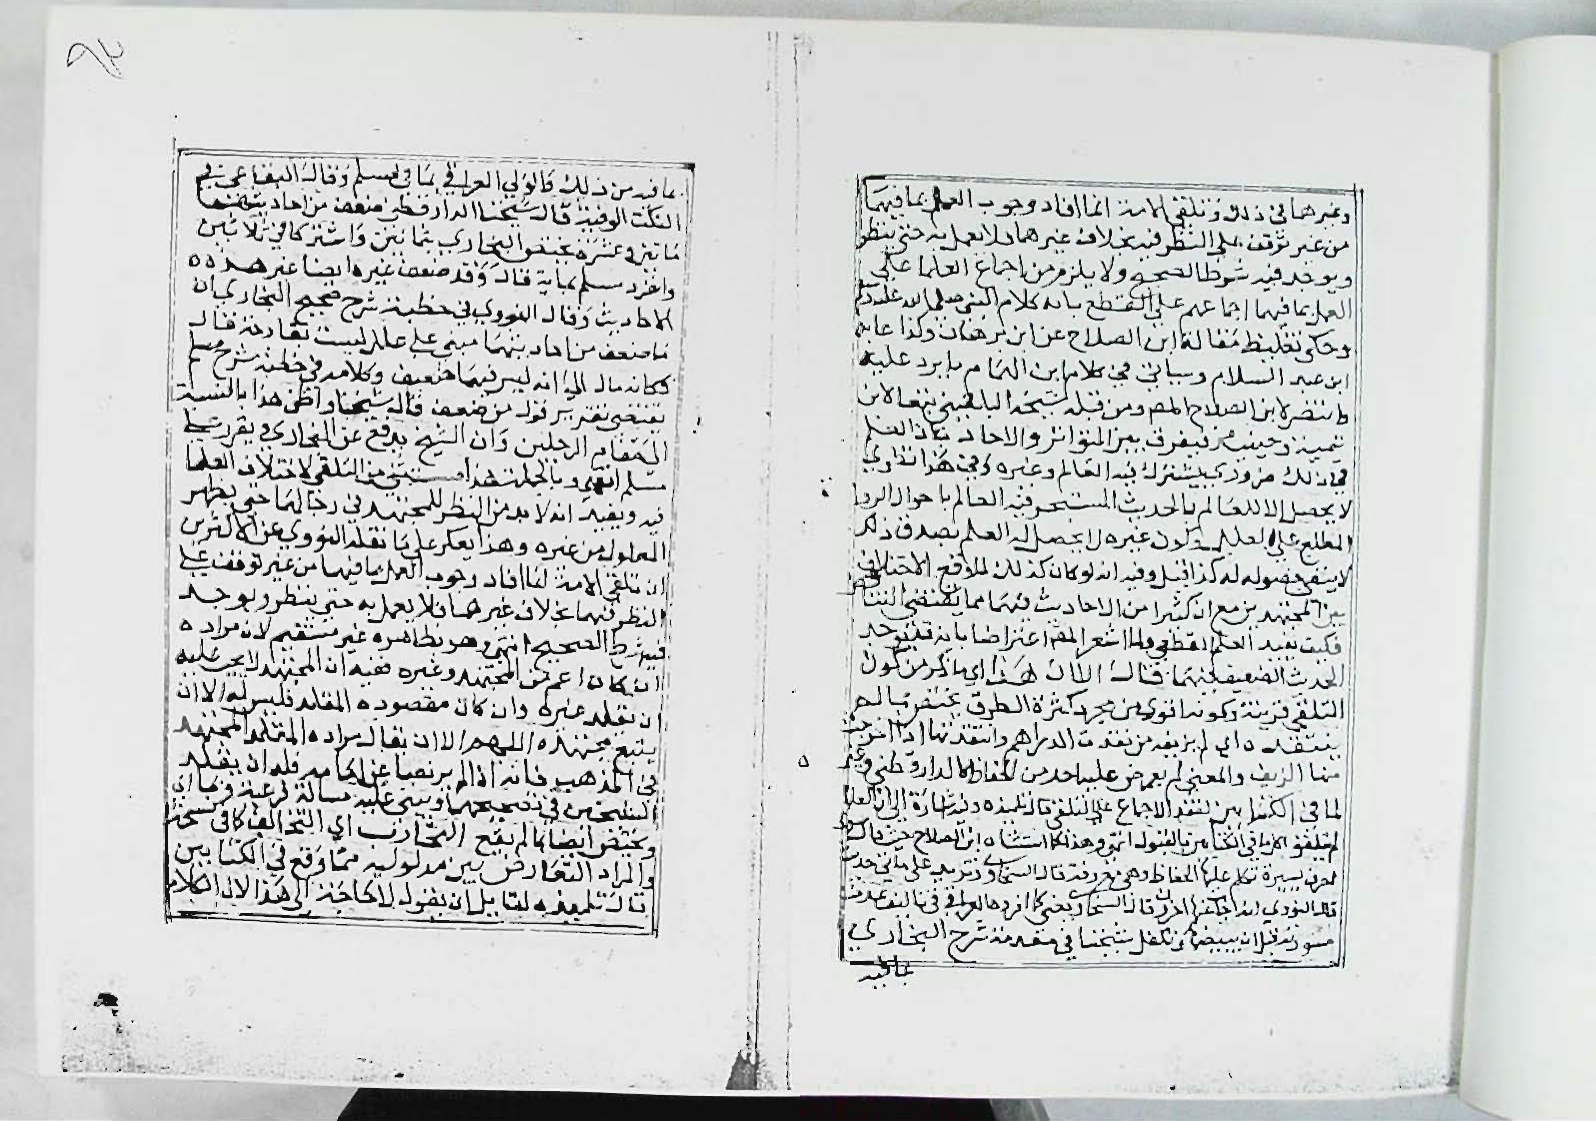 وغيرهما في ذلك وتلقي الامة انما افاد وجوب العمل بما فيهما
من غير توقف على النظر فيه بخلاف غيرهما فلا يعمل به حتى ينظر
ويوجد فيه شروط الصحيح ولا يلزم من اجماع العلما على
العمل بما فيهما اجماعهم على القطع بانه كلام النبي صلى الله عليه وسلم
وحكى تغليظ مقالة ابن الصلاح عن ابن برهان وكذا عابه
ابن عبد السلام وسياتي في كلام ابن الهمام ما يرد عليه
ما انتصر لابن الصلاح المص ومن قبله شيخه البلقيني تبعا لابن
تيمية وحينئذ فيفرق بين المتواتر والاحاد بان العلم
في ذلك ضروري يشترك فيه العالم وغيره وفي هذا نظري
لا يحصل الا للعالم بالحديث المتبحر فيه العالم باحوال الرواة
المطلع على العلل وكون غيره لا يحصل له العلم بصدق ذلك
لا ينفي حصوله له كذا قيل وفيه انه لو كان كذلك لما وقع الاختلاف
بين المجتهدين مع ان كثيرا من الاحاديث فيهما مما يقتضي التناقض
فكيف يفيد العلم القطعي ولما اشعر المص اعتراضا بانه قد يوجد
الحديث الضعيف فيهما قال الا ان هذا اي ما ذكر من كون
التلقي قرينة وكونه اقوى من مجرد كثرة الطرق يختص بما لم
ينتقده اي لم يزيفه من نقدت الدراهم وانتقدتها اذا اخرجت
منها الزيف والمعنى لم يعترض عليه احد من الحفاظ كالدارقطني وغيره
مما في الكتابين لفقد الاجماع على التلقي قال تلميذه وفيه اشارة الى ان العلما
لم يتلقوا كل ما في الكتابين بالقبول انتهى وهذا كما استثناه ابن الصلاح حيث قال
احرف يسيرة تكلم عليها الحفاظ وهي معروفة قال السخاوي وتزيد على مائتي حديث
قال النووي اجاب عنها اخرون قال السخاوي يعني كما افردها العراقي في تاليف عدمت
مسودته قبل ان يبيضها وتكفل شيخنا في مقدمة شرح البخاري
بما فيه
بما فيه من ذلك والولي العراقي بما في مسلم وقال البقاعي في
النكت الوفية قال شيخنا الدارقطني ضعف من احاديثهما
مائتين وعشرة يختص البخاري بثمانين واشتركا في ثلاثين
وانفرد مسلم بماية قال وقد ضعف غيره ايضا غير هذه
الاحاديث وقال النووي في خطبة شرح صحيح البخاري ان
ما ضعف من احاديثهما مبني على علل ليست بقادحة قال
فكانه مال الى انه ليس فيهما ضعيف وكلامه في خطبة شرح مسلم
يقتضي تقرير قول من ضعف قال شيخنا واظن هذا بالنسبة
الى مقام الرجلين وان الشيخ يدفع عن البخاري ويقرر على
مسلم انتهى وبالجملة هذا مستثنى من التلقي لاختلاف العلما
فيه ويفيد انه لا بد من النظر للمجتهد في رجالهما حتى يظهر
المعلول من غيره وهذا يعكر على ما نقله النووي عن الاكثرين
ان تلقي الامة انما افاد وجوب العمل بما فيهما من غير توقف على
النظر فيهما بخلاف غيرهما فلا يعمل به حتى ينظر ويوجد
فيه شرط الصحيح انتهى وهو بظاهره غير مستقيم لان مراده
ان كان اعم من المجتهد وغيره ففيه ان المجتهد لا يجب عليه
ان يقلد غيره وان كان مقصوده المقلد فليس له الا ان
يتبع مجتهده اللهم الا ان يقال مراده المقلد المجتهد
في المذهب فانه اذا لم ير نصا عن امامه فله ان يقلد
الشيخين في تصحيحهما ويبني عليه مسالة فرعية
ويختص ايضا بما لم يقع التجاذب اي التخالف كما في نسخة
والمراد التعارض بين مدلوليه مما وقع في الكتابين
قال تلميذه لقايل ان يقول لا حاجة الى هذا لان الكلام